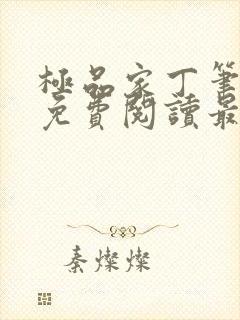 極品家丁筆
免費閱讀最
秦燦燦